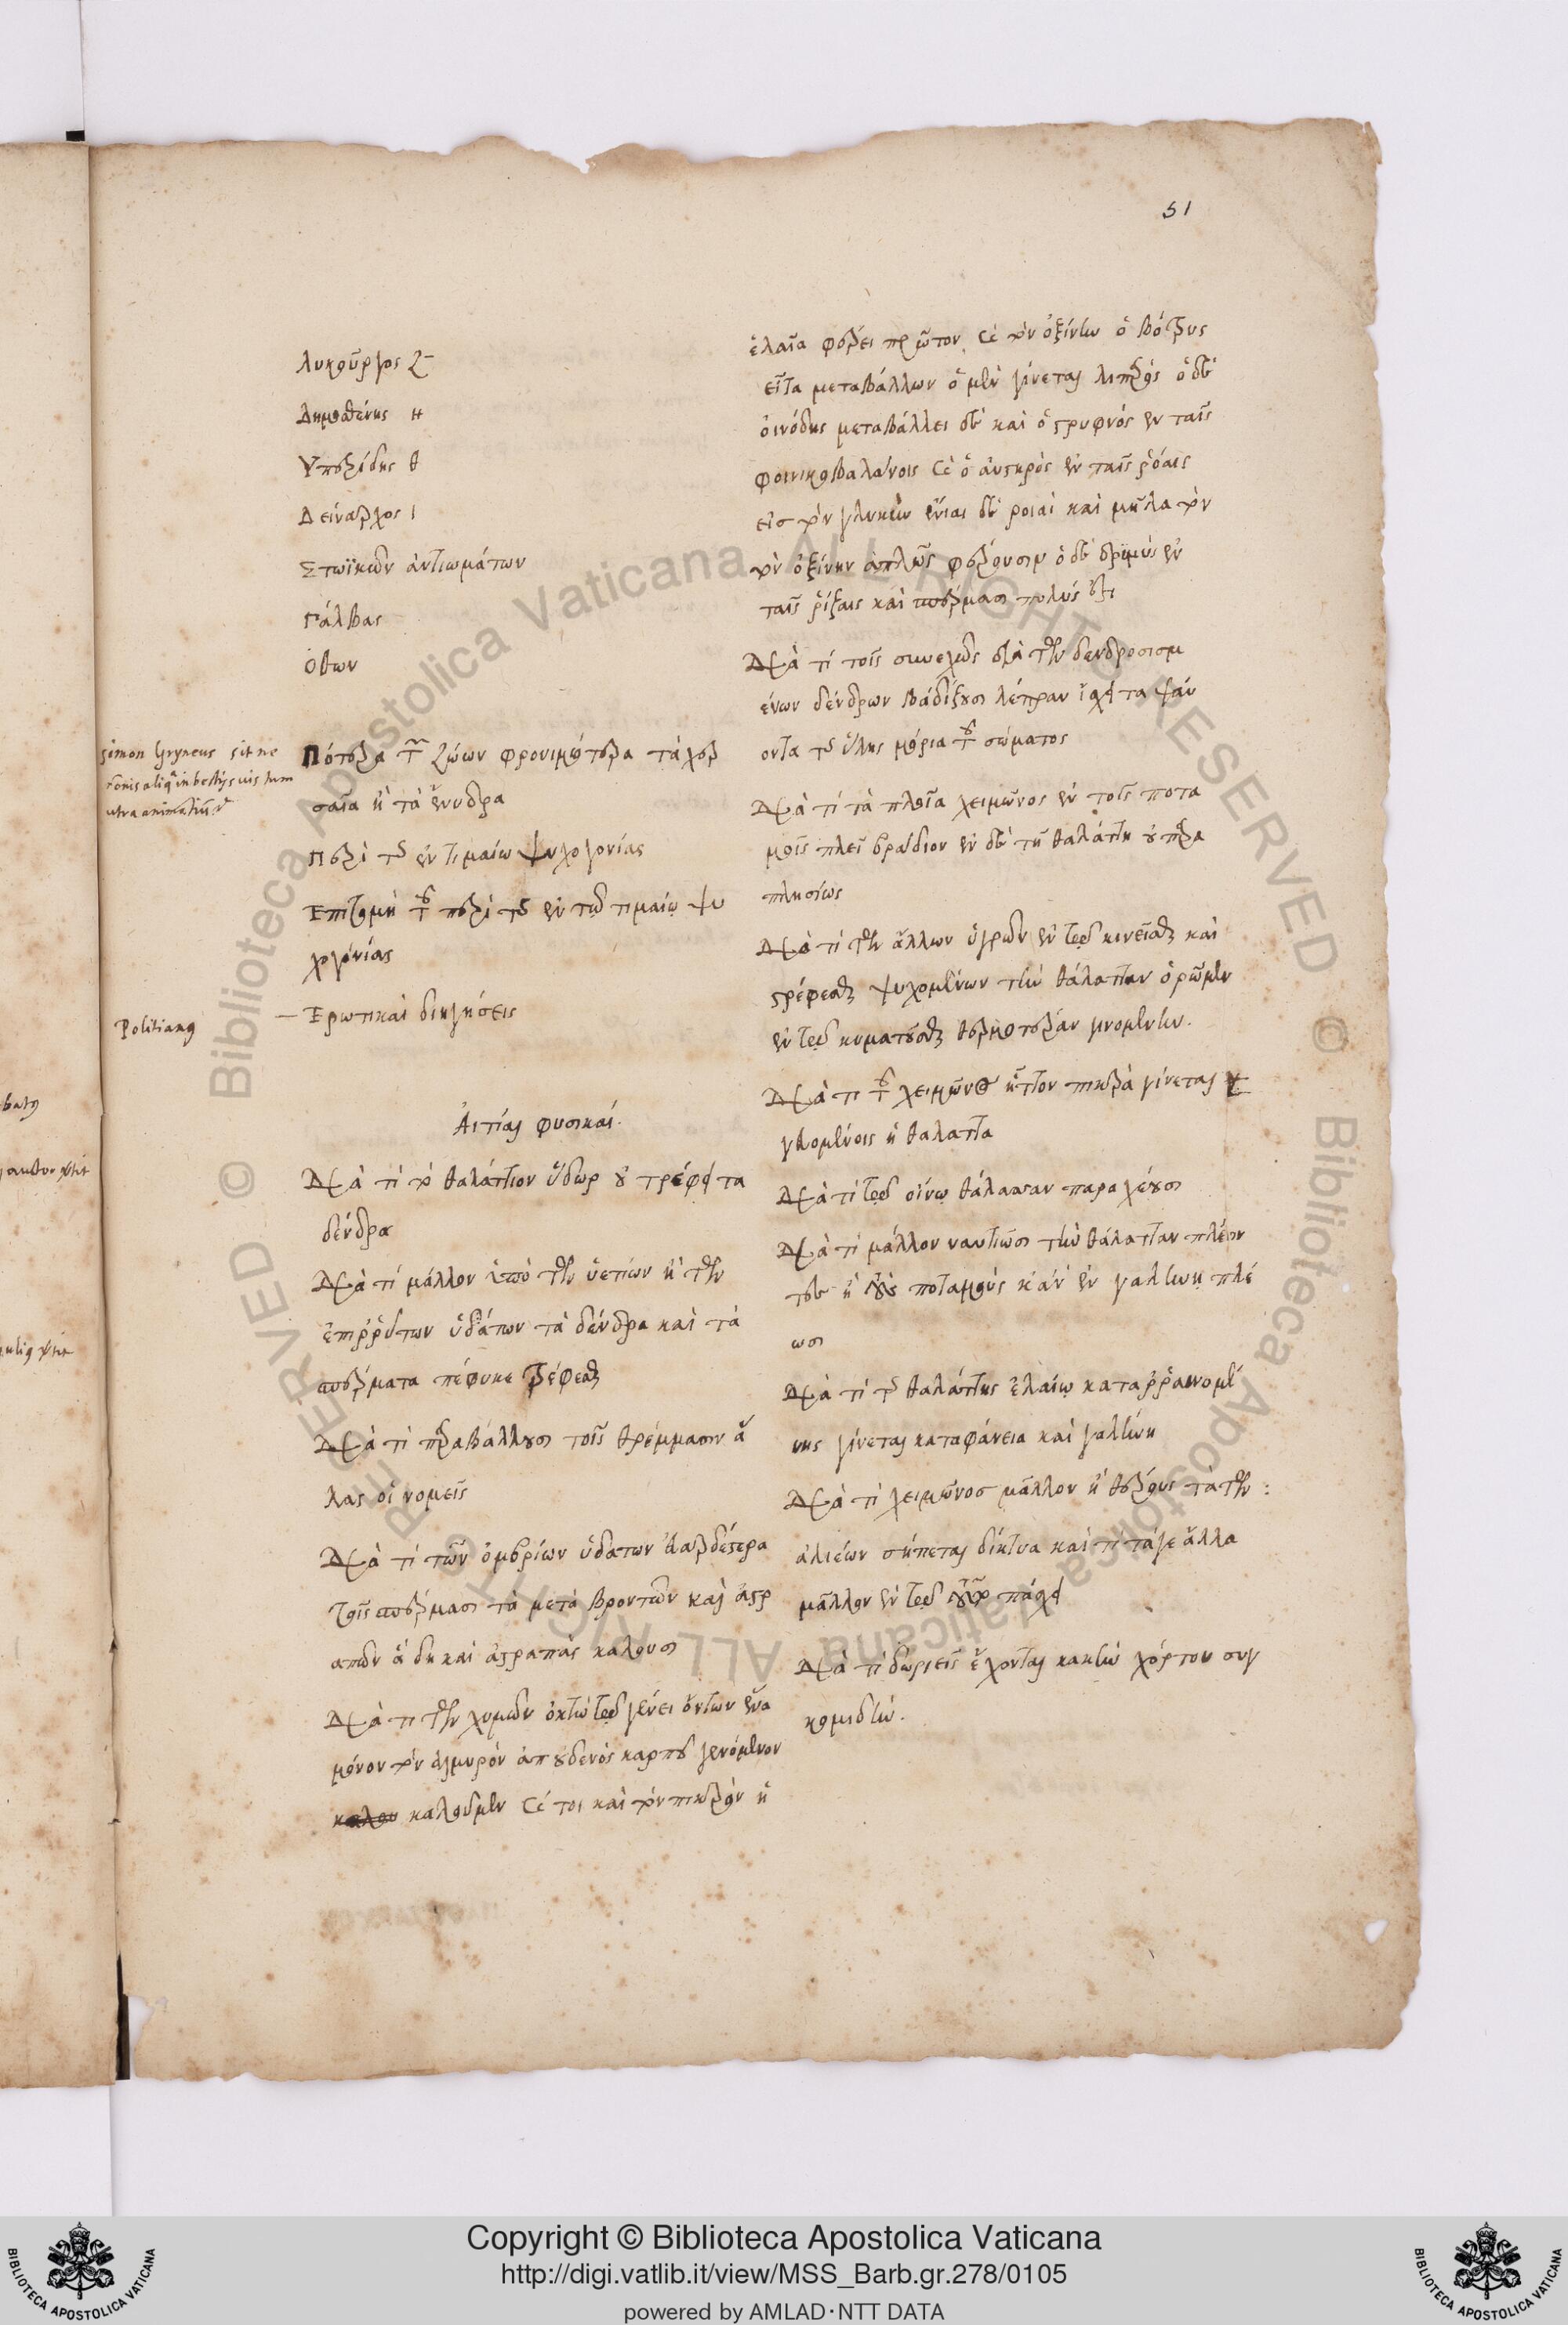 51
λυκοῦργος ζ
Δημοσθένης η
Ὑπερίδης θ
Δείναρχος ι
Στωϊκῶν ἀντιωμάτων
Γάλβας
Ὄθων
Simon Gryneus sit ne
utra animatiū
Πότερα τῶν ζώων φρονιμώτερα τὰ χερ
σαῖα ἢ τὰ ἔνυδρα
Περὶ τῆς ἐν τιμαίω ψυχογονίας
Ἐπιτομὴ τοῦ περὶ τῆς ἐν τῷ τιμαίῳ ψυ
χογονίας
Politianus
Ἐρωτικαὶ διηγήσεις
Αἰτίαι φυσικαί.
Διὰ τί τὸ θαλάττιον ὕδωρ οὐ τρέφει τα
δένδρα
Διὰ τί μάλλον ὑπὸ τῶν ὑετίων ἢ τῶν
ἐπιρρύτων ὑδάτων τὰ δένδρα καὶ τὰ
σπέρματα πέφυκε τρέφεσθαι
Διὰ τί παραβάλλουσι τοῖς θρέμμασιν ἅ
λας οἱ νομεῖς
Διὰ τί τῶν ὀμβρίων ὑδατων εὐαρδέστερα
τοῖς σπέρμασι τὰ μετὰ βροντῶν καὶ ἀστρ
απῶν ἃ δὴ καὶ ἀστραπὰς καλουσι
Διὰ τι τῶν χυμῶν ὀκτὼ τῷ γένει ὄντων ἕνα
μόνον τὸν ἁλμυρὸν ἀπ οὐδενὸς καρποῦ γενόμενον
καλου καλοῦμεν καί τοι καὶ τὸν πικρὸν ἡ
ἐλαῖα φέρει πρῶτον καὶ τὸν ὀξίνην ὁ βότρυς
εἶτα μεταβάλλων ὁ μὲν γίνεται λιπαρὸς ὁ δὲ
οἰνόδης μεταβάλλει δὲ καὶ ὁ στρυφνός ἐν ταῖς
φοινικοβαλάνοις καὶ ὁ αὐστηρὸς ἐν ταῖς ῥόαις
εἰσ τὸν γλυκὺν ἔνιαι δὲ ροιαὶ καὶ μῆλα τὸν
τὸν ὀξίνην ἁπλῶς φέρουσιν ὁ δὲ δριμὺς ἐν
ταῖς ῥίζαις καὶ σπέρμασι πολύς ἐστι
Διὰ τί τοῖς συνεχῶς διὰ τῶν δενδροσισμ
ένων δένδρων βαδίζουσι λέπραν ἴσχει τα ψαύ
οντα τῆς ὕλης μόρια τοῦ σώματος
Διὰ τί τὰ πλοῖα χειμῶνος ἐν τοῖς ποτα
μοῖς πλεῖ βράδιον ἐν δὲ τῇ θαλάττῃ οὐ παρα
πλησίως
Διὰ τί τῶν ἄλλων ὑγρῶν ἐν τῷ κινεῖσθαι καὶ
στρέφεσθαι ψυχομένων τὴν θάλατταν ὁρῶμεν
ἐν τῷ κυματοῦσθαι θερμοτεράν γινομένην.
Διὰ τι τοῦ χειμῶνος ἧττον πικρὰ γίνεται
γευομένοις ἡ θαλαττα
Διὰ τί τῷ οἴνῳ θάλασσαν παραχέουσι
Διὰ τί μάλλον ναυτιῶσι τὴν θάλατταν πλέον
τες ἢ τοὺς ποταμοὺς κἂν ἐν γαλήνῃ πλέ
ωσι
Διὰ τί τῆς θαλάττης ἐλαίῳ καταρραινομέ
νης γίνεται καταφάνεια καὶ γαλήνη
Διὰ τί χειμῶνοσ μᾶλλον ἢ θέρους τὰ τῶν
ἁλιέων σήπεται δίκτυα καὶ τὰ γε ἄλλα
μᾶλλον ἐν τῷ πάσχει
Διὰ τί δωριεῖς εὔχονται κακὴν χόρτου συγ
κομιδήν.
Copyright © Biblioteca Apostolica Vaticana
http://digi.vatlib.it/view/MSS_Barb.gr.278/0105
powered by AMLAD·NTT DATA